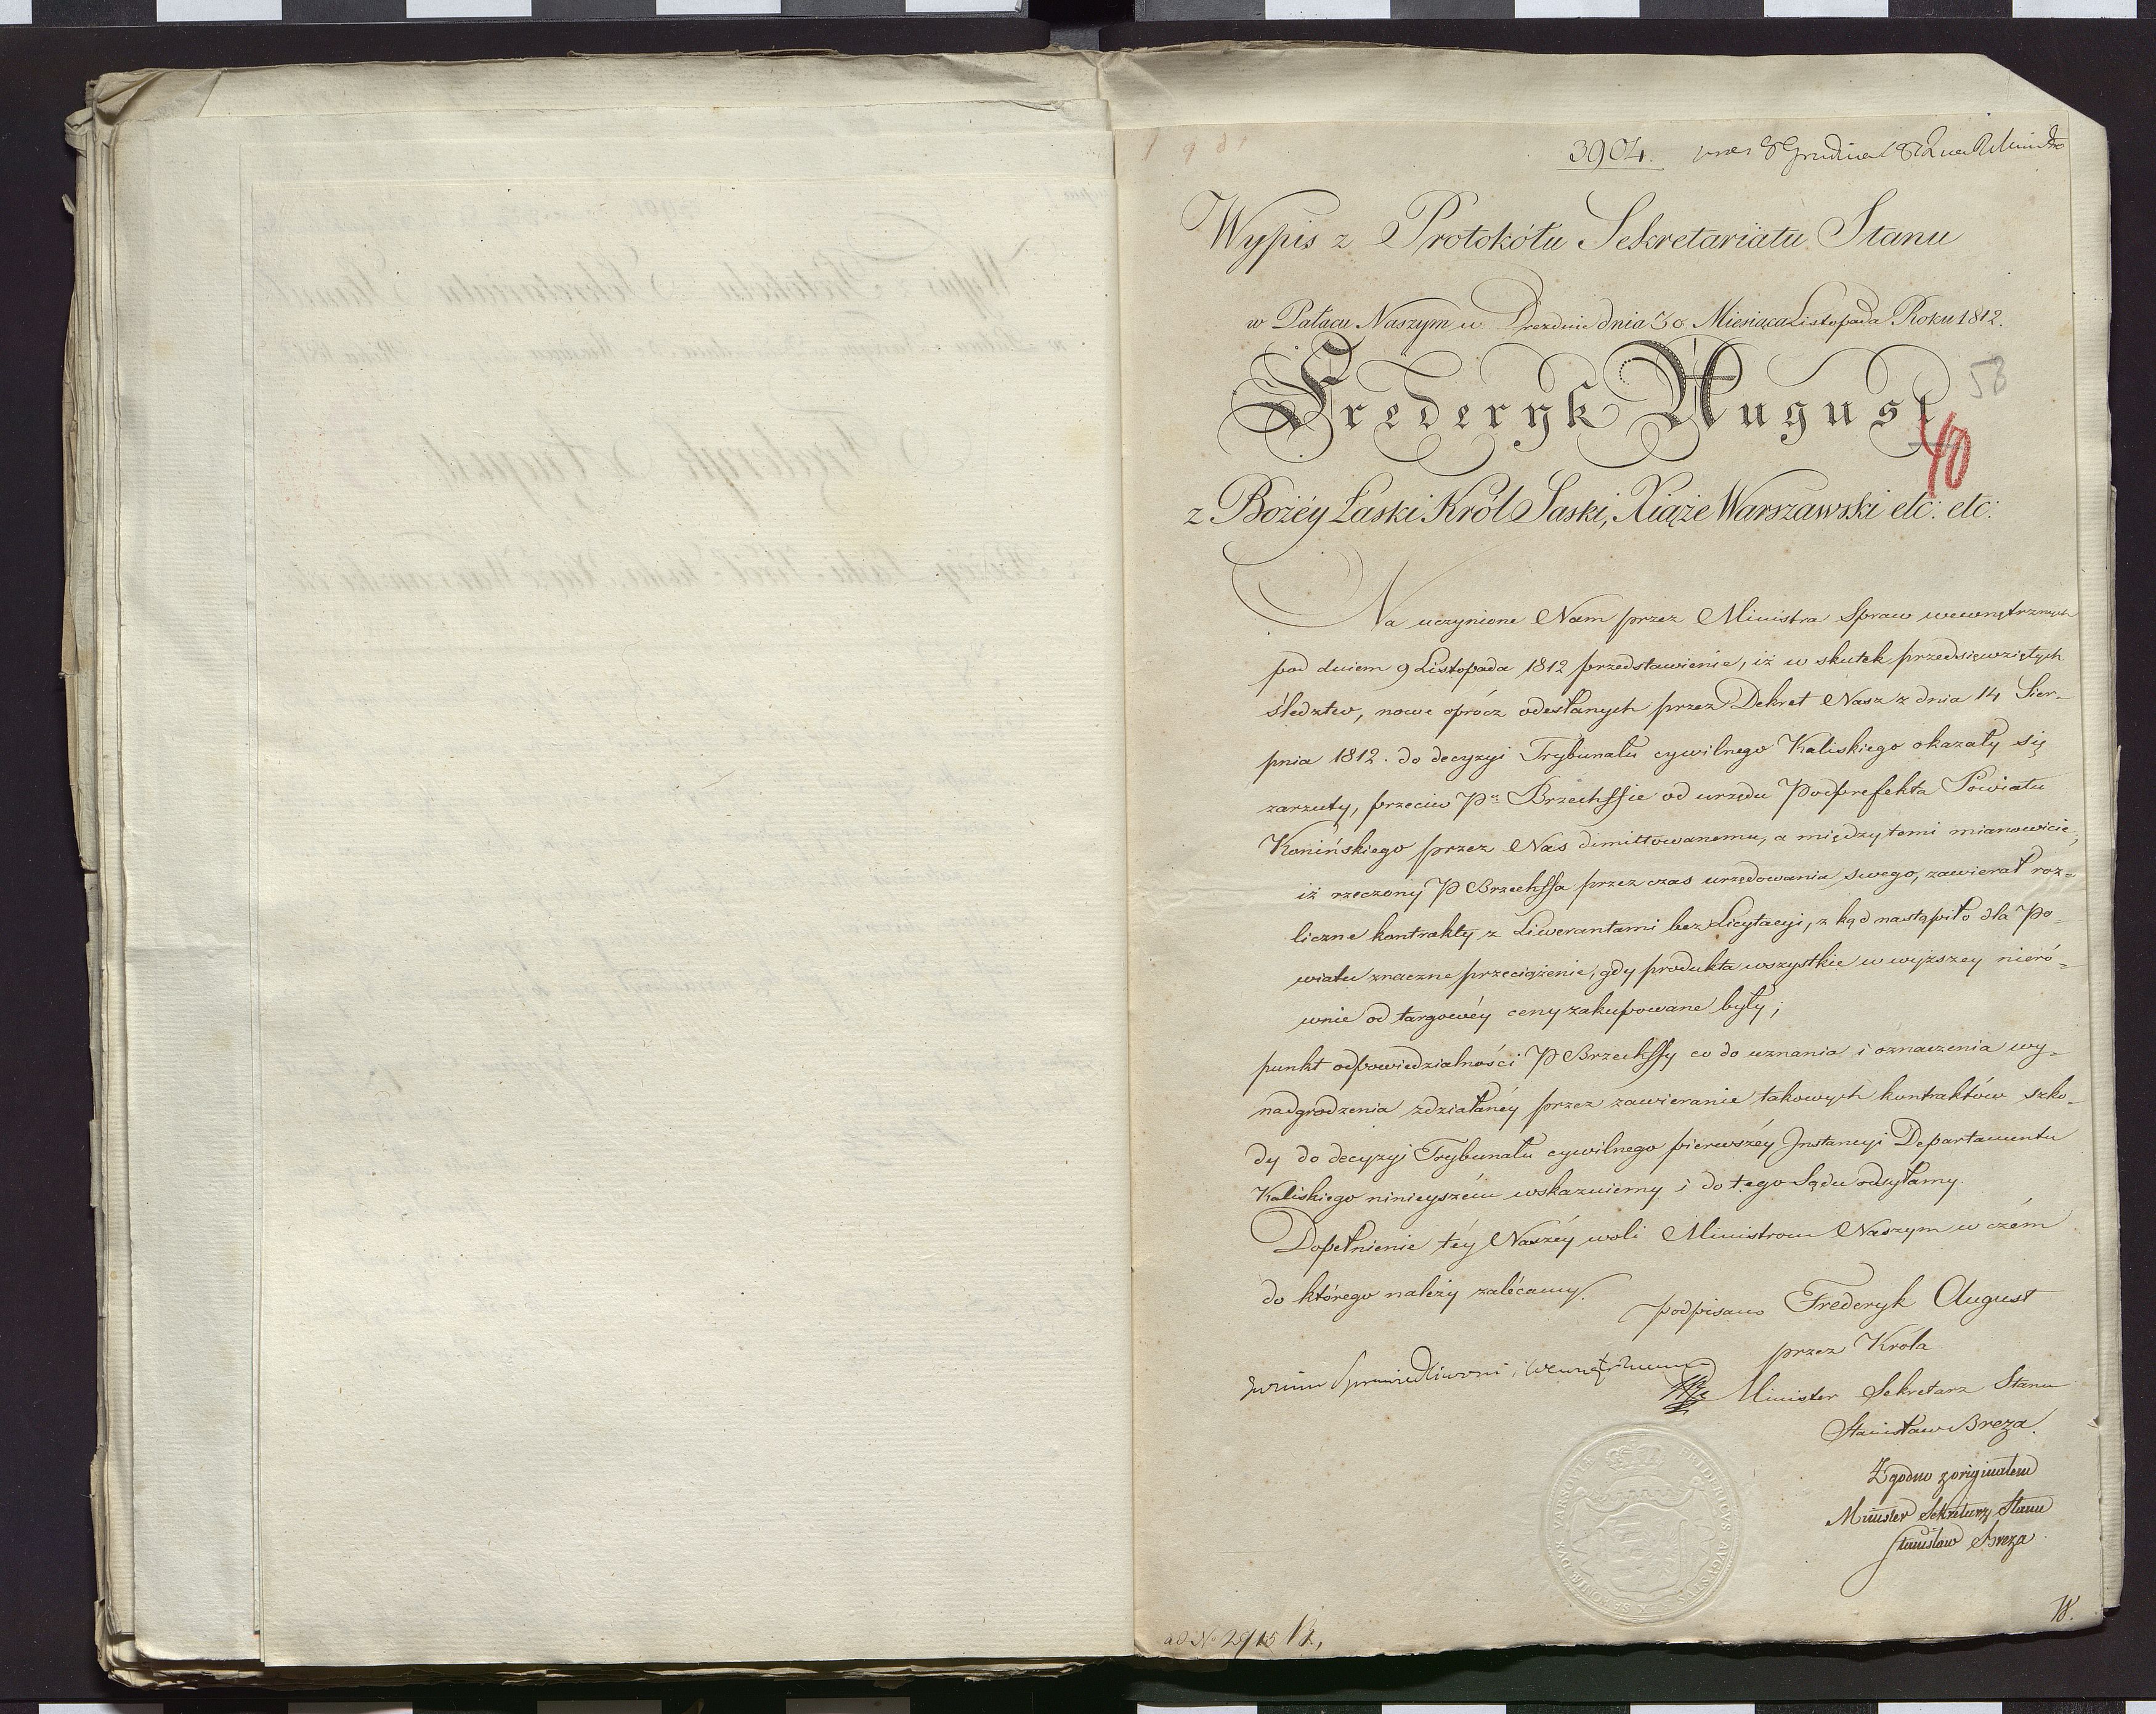 3904. 8 Grudnia 812
Wypis z Protokółu Sekretariatu Stanu
w Pałacu Naszym w Dreznie dnia 30 Miesiąca Listopada Roku 1812.
58
Frederyk August
40
z Bożéy Łaski Król Saski, Xiąże Warszawski etc: etc:
Na uczynione Nam przez Ministra Spraw wewnętrznych
pod dniem 9 Listopada 1812 przedstawienie, iż w skutek przedsięwziętych
śledztw, nowe oprócz odesłanych przez Dekret Nasz z dnia 14 Sier-
pnia 1812. do decyzyi Trybunału cywilnego Kaliskiego okazały się
zarzuty, przeciw Pu Brzechffie od urzędu Podprefekta Powiatu
Konińskiego przez Nas dimittowanemu, a między temi mianowicie;
iż rzeczony P Brzechffa przez czas urzędowania swego, zawierał roz-
liczne kontrakty z Liwerantami bez Licytacyi, z kąd nastąpiło dla Po-
wiatu znaczne przeciążenie, gdy produkta wszystkie w wyższey nieró-
wnie od targowéy ceny zakupowane były;
punkt odpowiedzialności P Brzechffy co do uznania i oznaczenia wy-
nadgrodzenia zdziałanéy przez zawieranie takowych kontraktów szko-
dy do decyzyi Trybunału cywilnego pierwszéy Instancyi Departamentu
Kaliskiego ninieyszém wskazuiemy i do tego Sądu odsyłamy.
Dopełnienie téy Naszéy woli Ministrom Naszym w czém
do którego należy zalécamy.
podpisano Frederyk August
przez Króla
Sprawiedliwości i Wewnętrznemu
Minister Sekretarz Stanu
Stanisław Breza.
Zgodno z originałem
Minister Sekretarz Stanu
Stanisław Breza
FRIDERICVS AVGVSTVS REX SAXONIAE DVX VARSOVIAE
ad No 2915 12,
W.